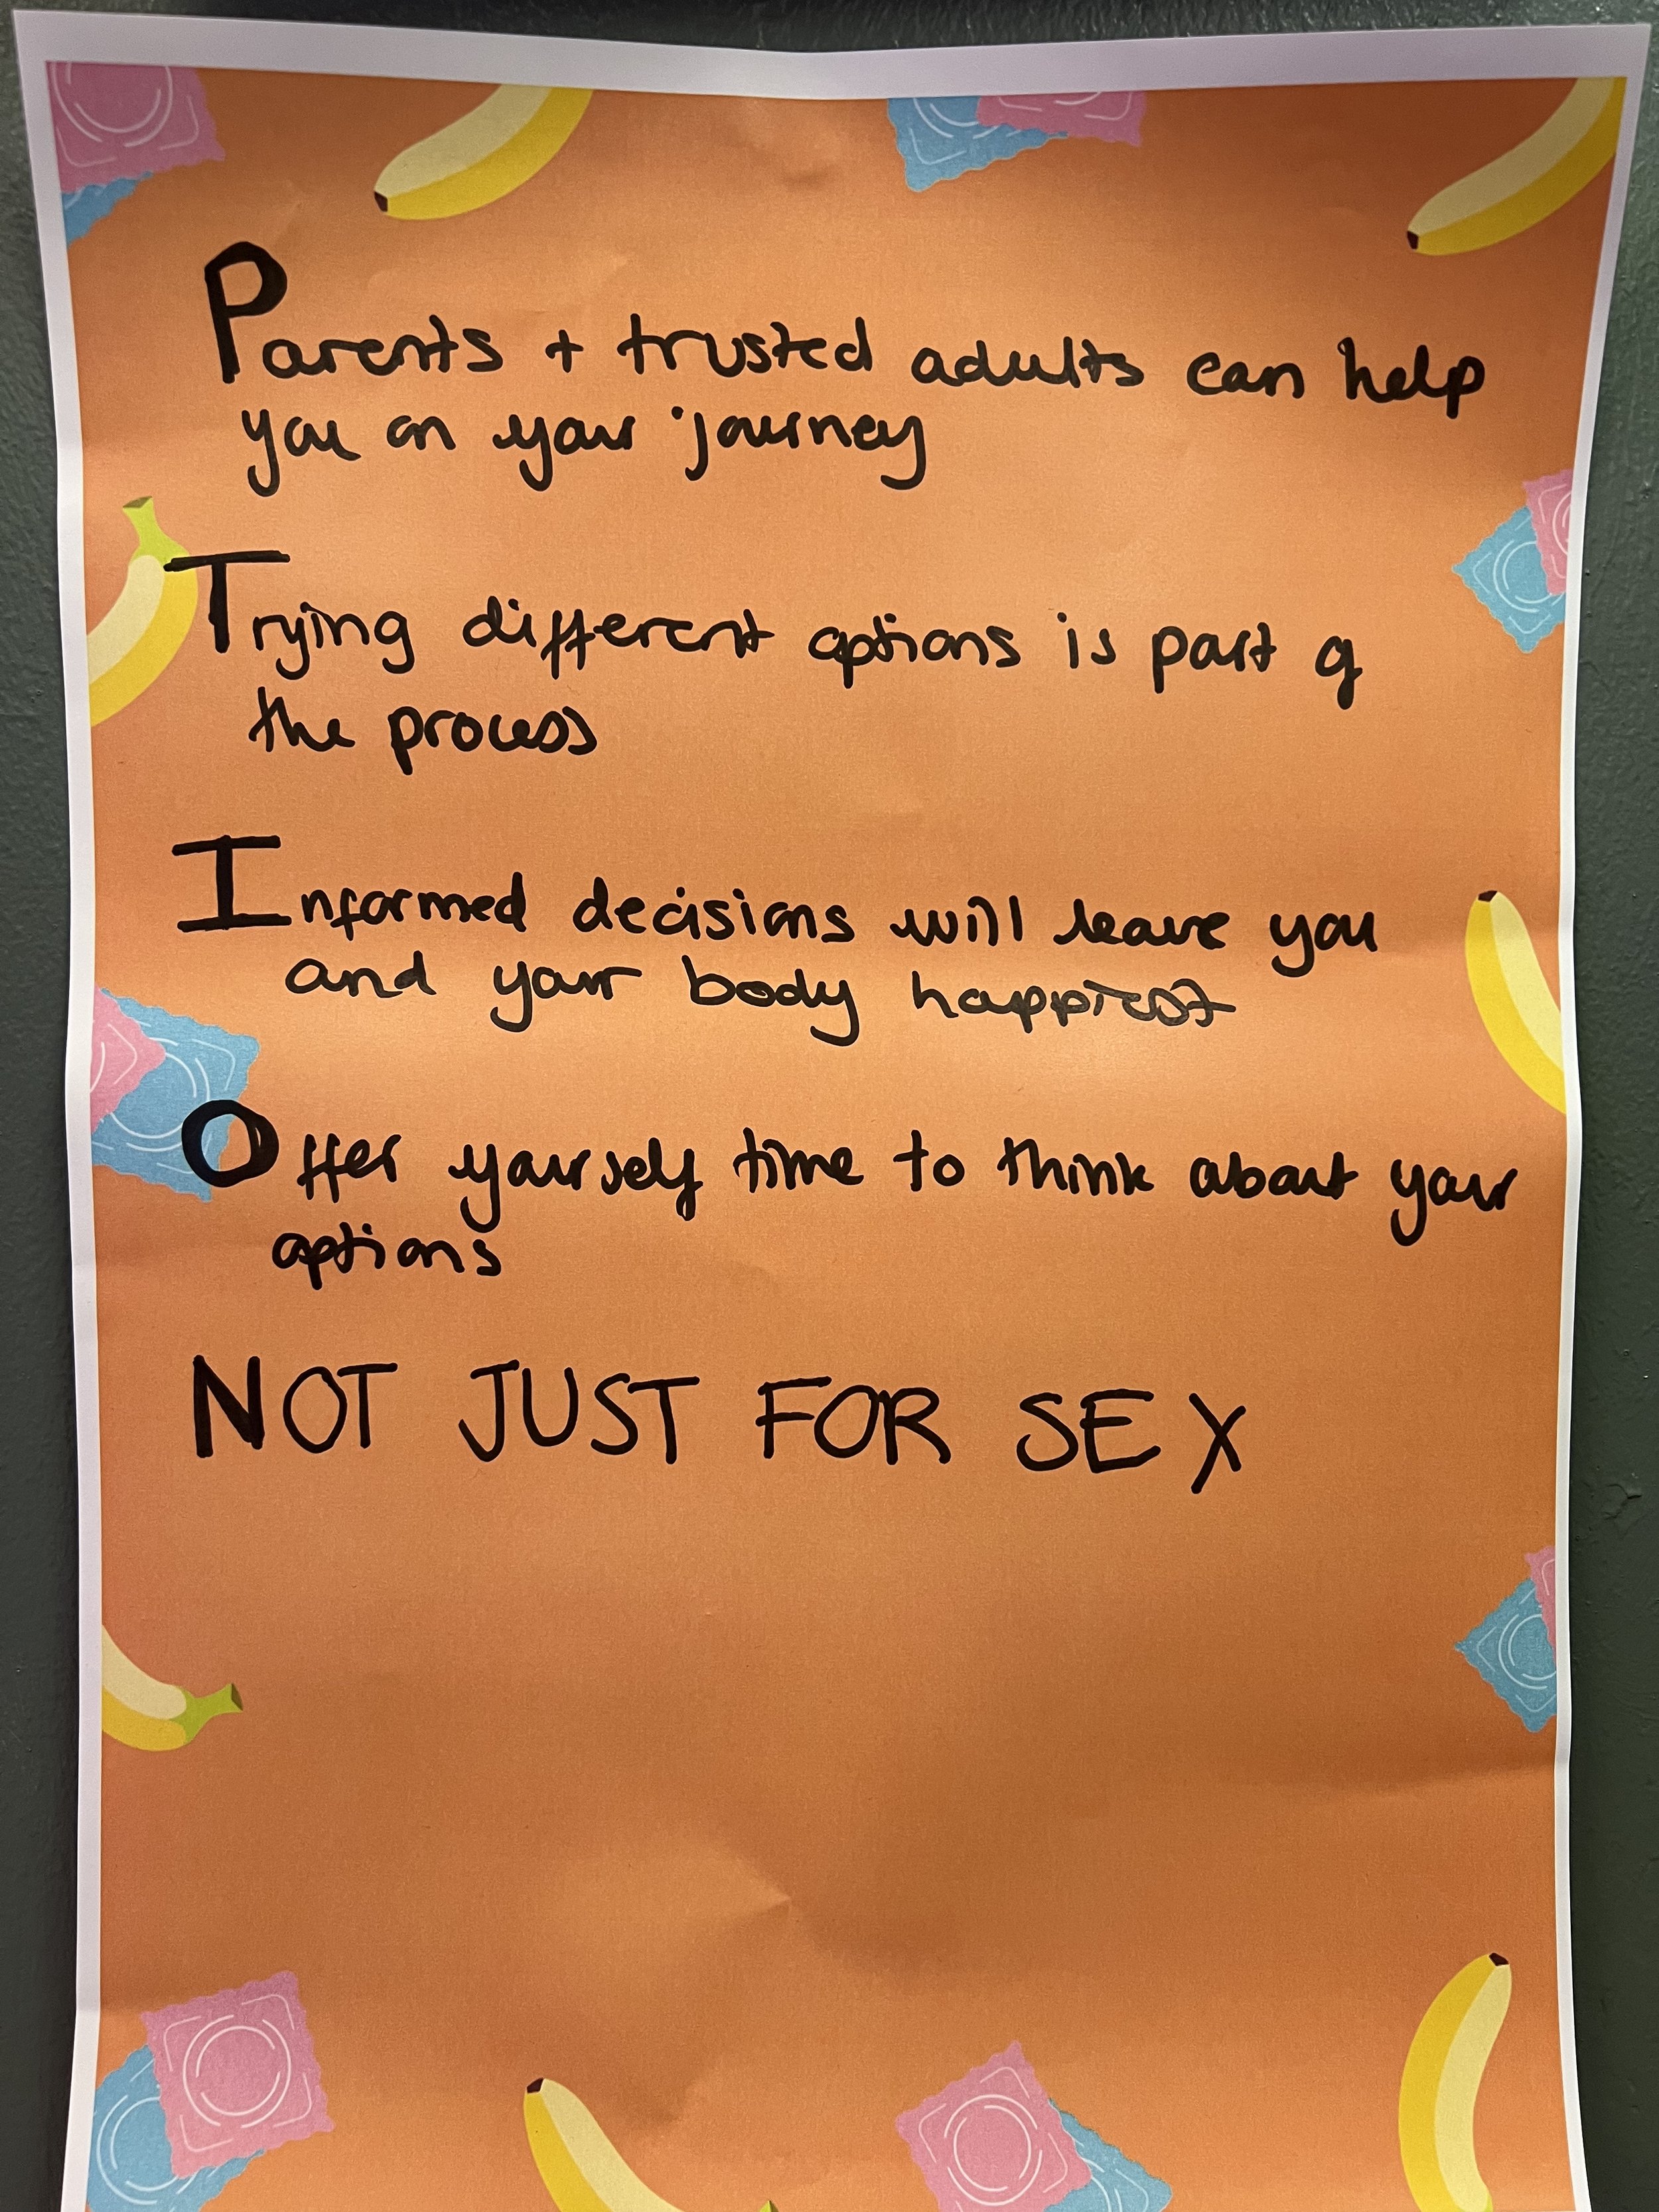 Parents + trusted adults can help
you on your journey
Trying different options is part of
the process
Informed decisions will leave you
and your body happiest
Offer yourself time to think about your
options
NOT JUST FOR SEX